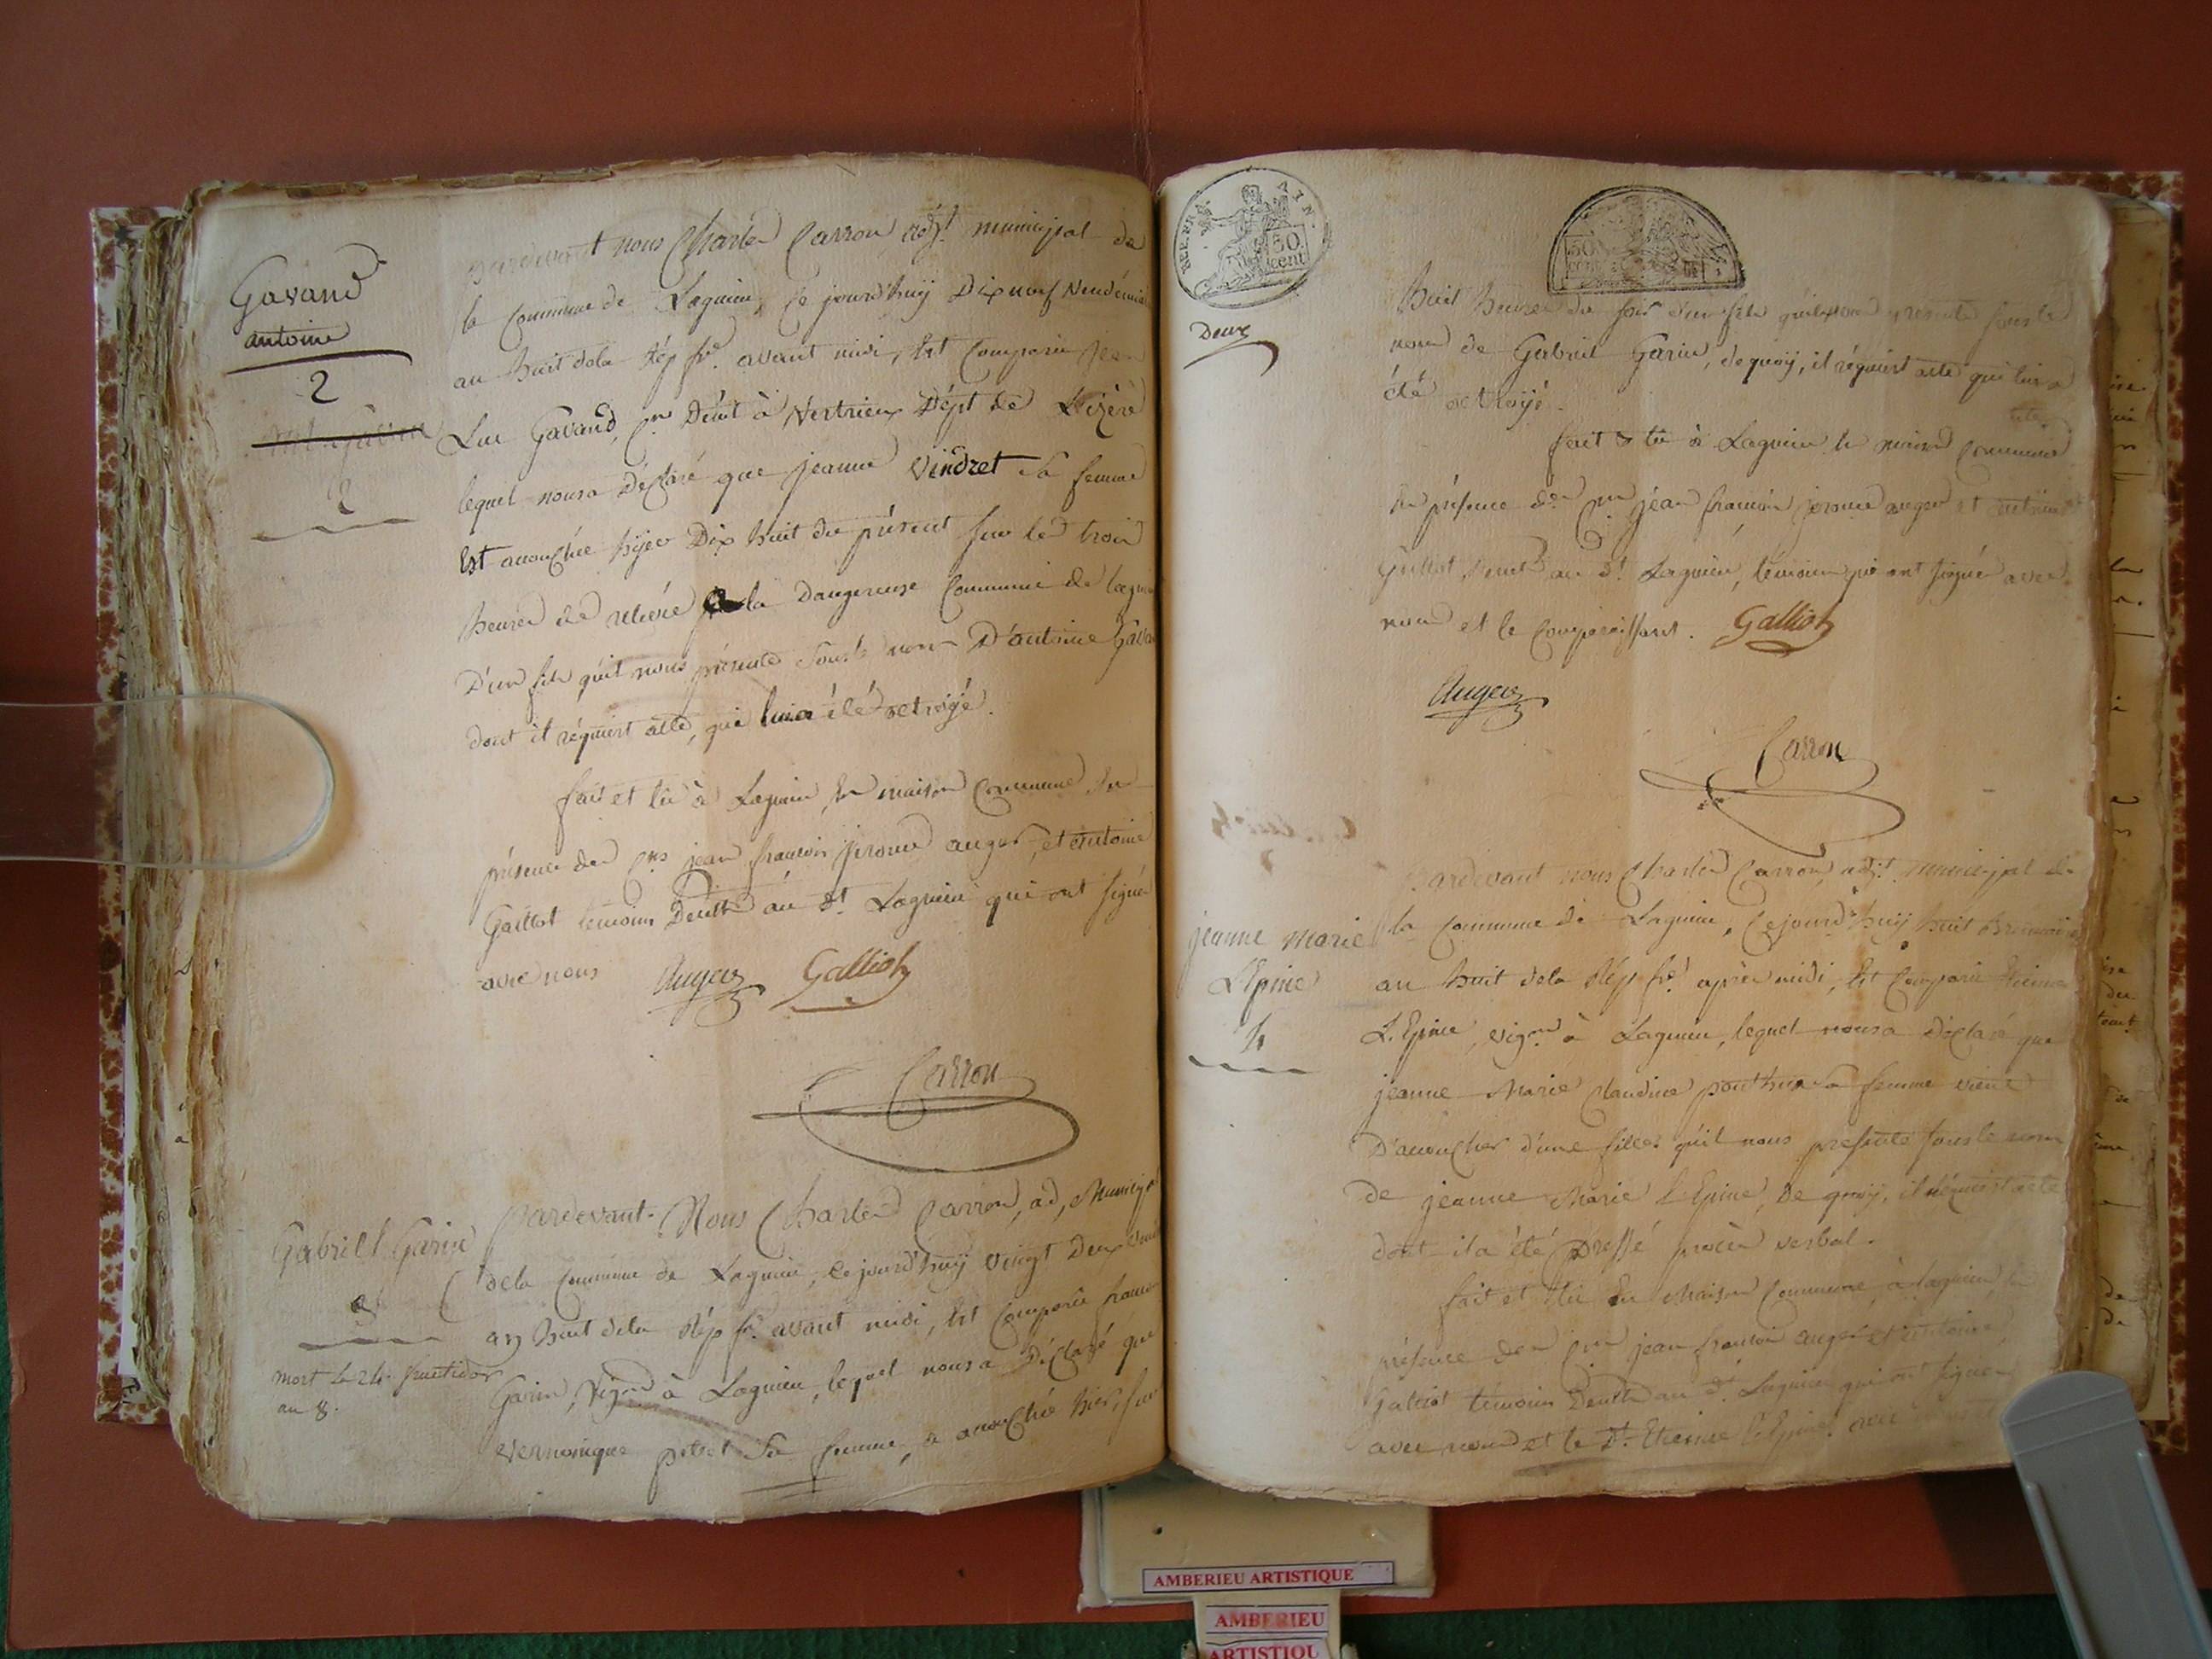 Gavand
antoine
2
2
Pardevant nous Charles Carron adjt. municipal de
la Commune de Lagnieu, Ce jourd'huy Dix neuf Vendémi
an huit dela Rép fre. avant midi, Est Comparu Jean
Luc Gavand, Cen Demt à Vertrieux Dépt de L'izère
lequel nous a Déclaré que jeanne Vindret Sa femme
Est accouchée hyer Dix huit du présent Sur les trois
heures de relevée la Dangereuse Commune de lagni
D'un fils qu'il nous présente Sous le nom D'antoine Gava
dont il réquiert acte, qui lui a été octroyé.
fait et lû à Lagnieu, En maison Commune En
présence des Cens jean françois jerome auger, et antoine
Galliot témoins Demts au dt. Lagnieu qui ont Signés
avec nous Auger Galliot
Carron
Gabriel Garin
3
mort Le 24. fructidor
an 8.
Pardevant Nous Charles Carron, ad, Municipl
dela Commune de Lagnieu, Ce jourd'huy Vingt Deux Vend
an huit dela Rép fre. avant midi, Est Comparu franc
Garin, Vigon à Lagnieu, lequel nous a Déclaré que
Vernonique Sa femme, a accouché hier, Sur
REP. FRA. AIN.
50
cent
50
cent
Deux
huit heures du soir d'un fils qu'il nous présente sous le
nom de Gabriel Garin, de quoy, il réquiert acte qui lui a
été octroyé.
fait & lû à Lagnieu En maison Commune
En présence des Cens jean françois jerome auger et antoine
Galliot Demts au dt. Lagnieu, témoins qui ont signés avec
nous et le Comparaissant. Galliot
Auger
Carron
jeanne Marie
L'Epine
4
Pardevant nous Charles Carron, adjt. municipal de
la Commune de Lagnieu, Cejourd'huy huit Brumaire
an huit dela Rép fre. après midi, Est Comparu Etienne
L'Epine, Vigon à Lagnieu, lequel nous a Déclaré que
jeanne Marie Claudine ponthus Sa femme vient
D'accoucher d'une fille qu'il nous presente sous le nom
de jeanne Marie L'Epine, De quoy, il réquiert acte
dont il a été Dressé procès verbal.
fait et lû En Maison Commune, à lagnieu, En
présence des Cens jean françois auger et antoine
Galliot témoins Demts au dt. Lagnieu qui ont signés
avec nous et le dt. Etienne L'Epine.
AMBERIEU ARTISTIQUE
AMBERIEU
ARTISTIQU